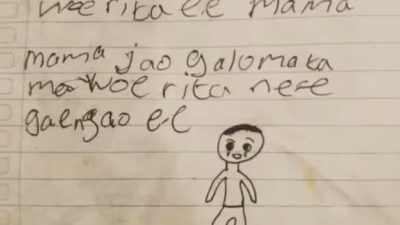 woe rita ee mama
mama jao galomata
woe rita nese
galngao ee